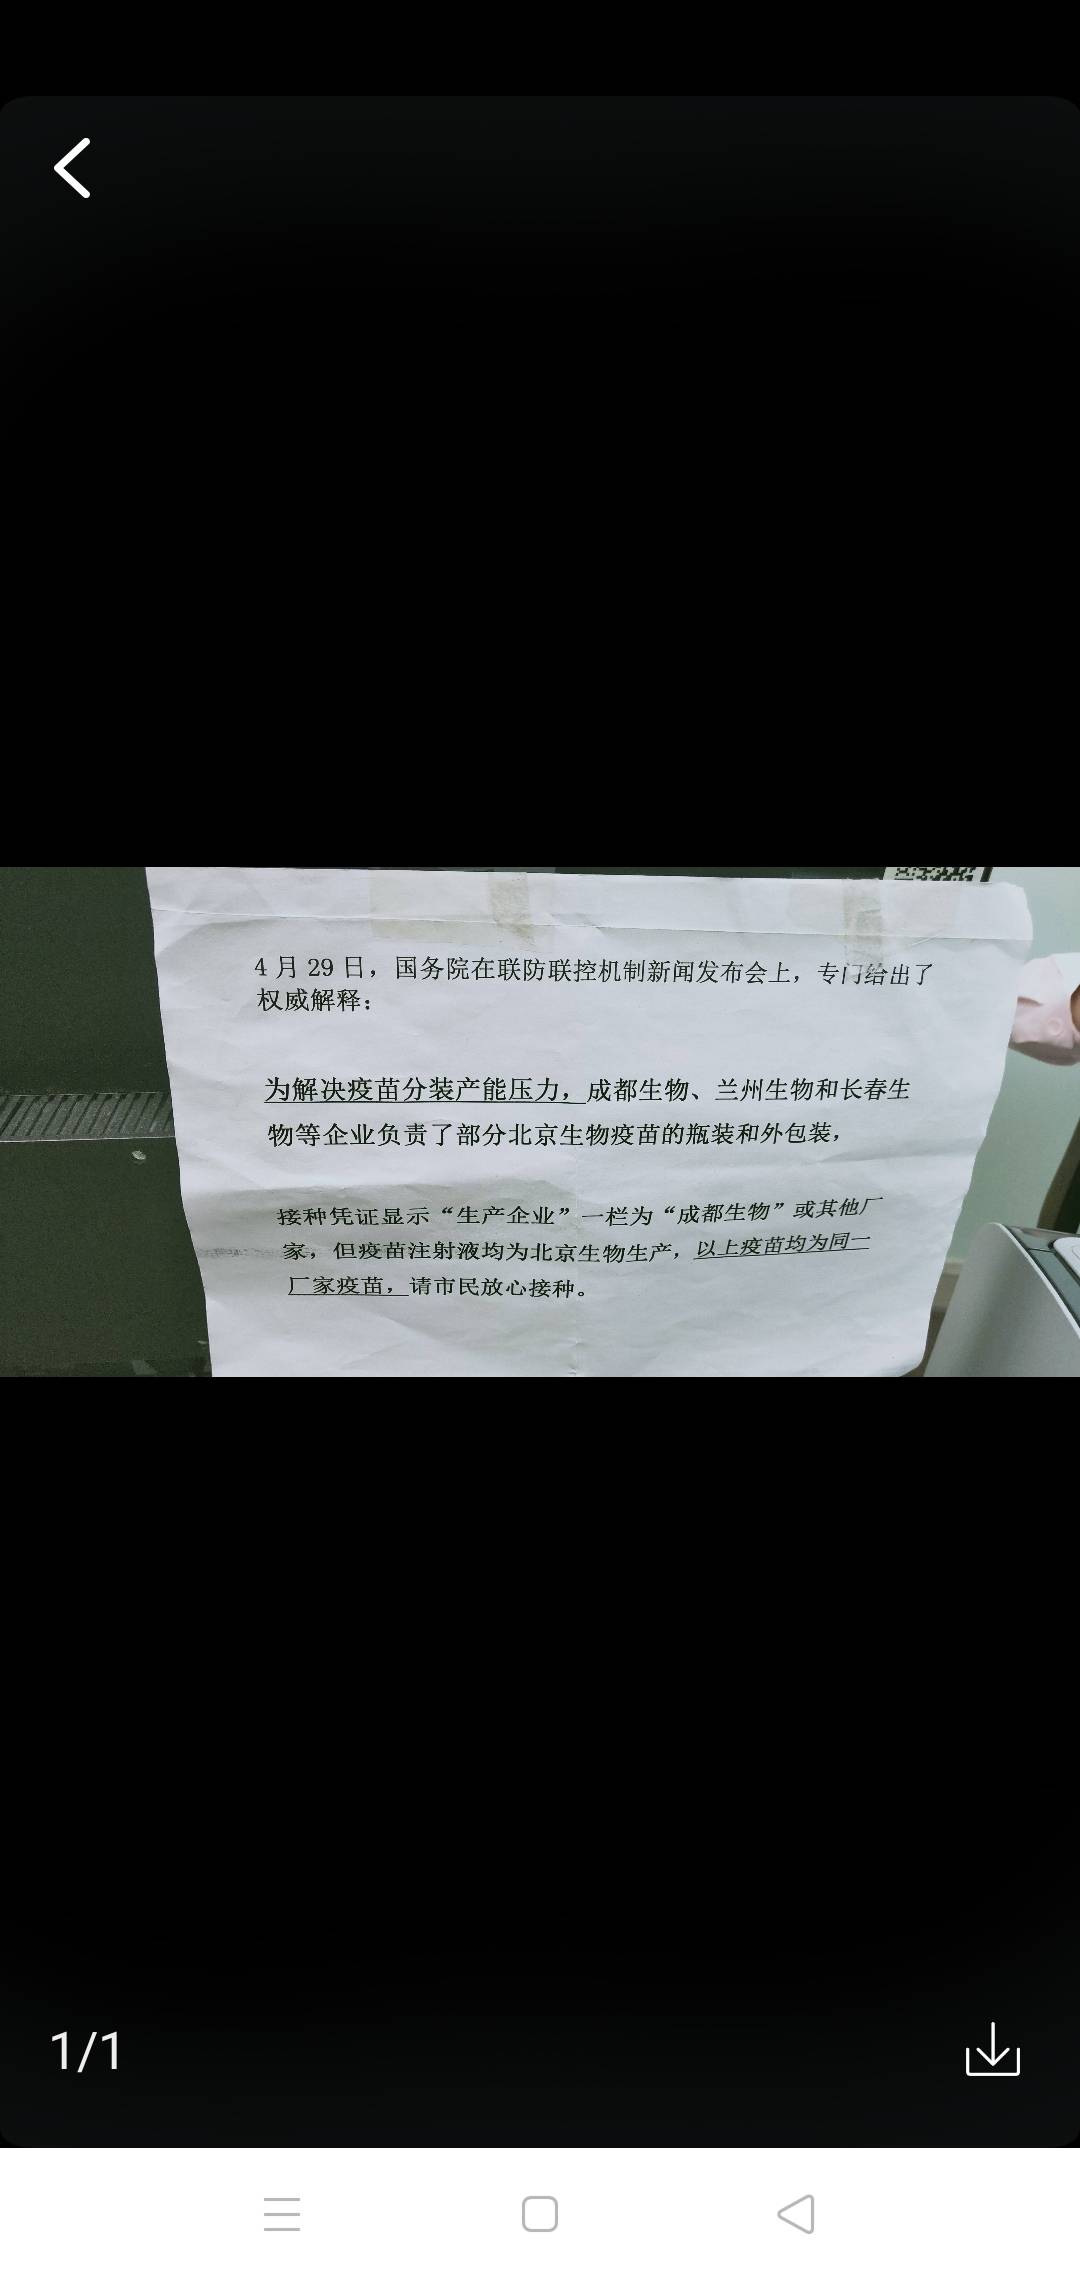 4月29日，国务院在联防联控机制新闻发布会上，专门给出了
权威解释：
为解决疫苗分装产能压力，成都生物、兰州生物和长春生
物等企业负责了部分北京生物疫苗的瓶装和外包装，
接种凭证显示“生产企业”一栏为“成都生物”或其他厂
家，但疫苗注射液均为北京生物生产，以上疫苗均为同一
厂家疫苗，请市民放心接种。
1/1